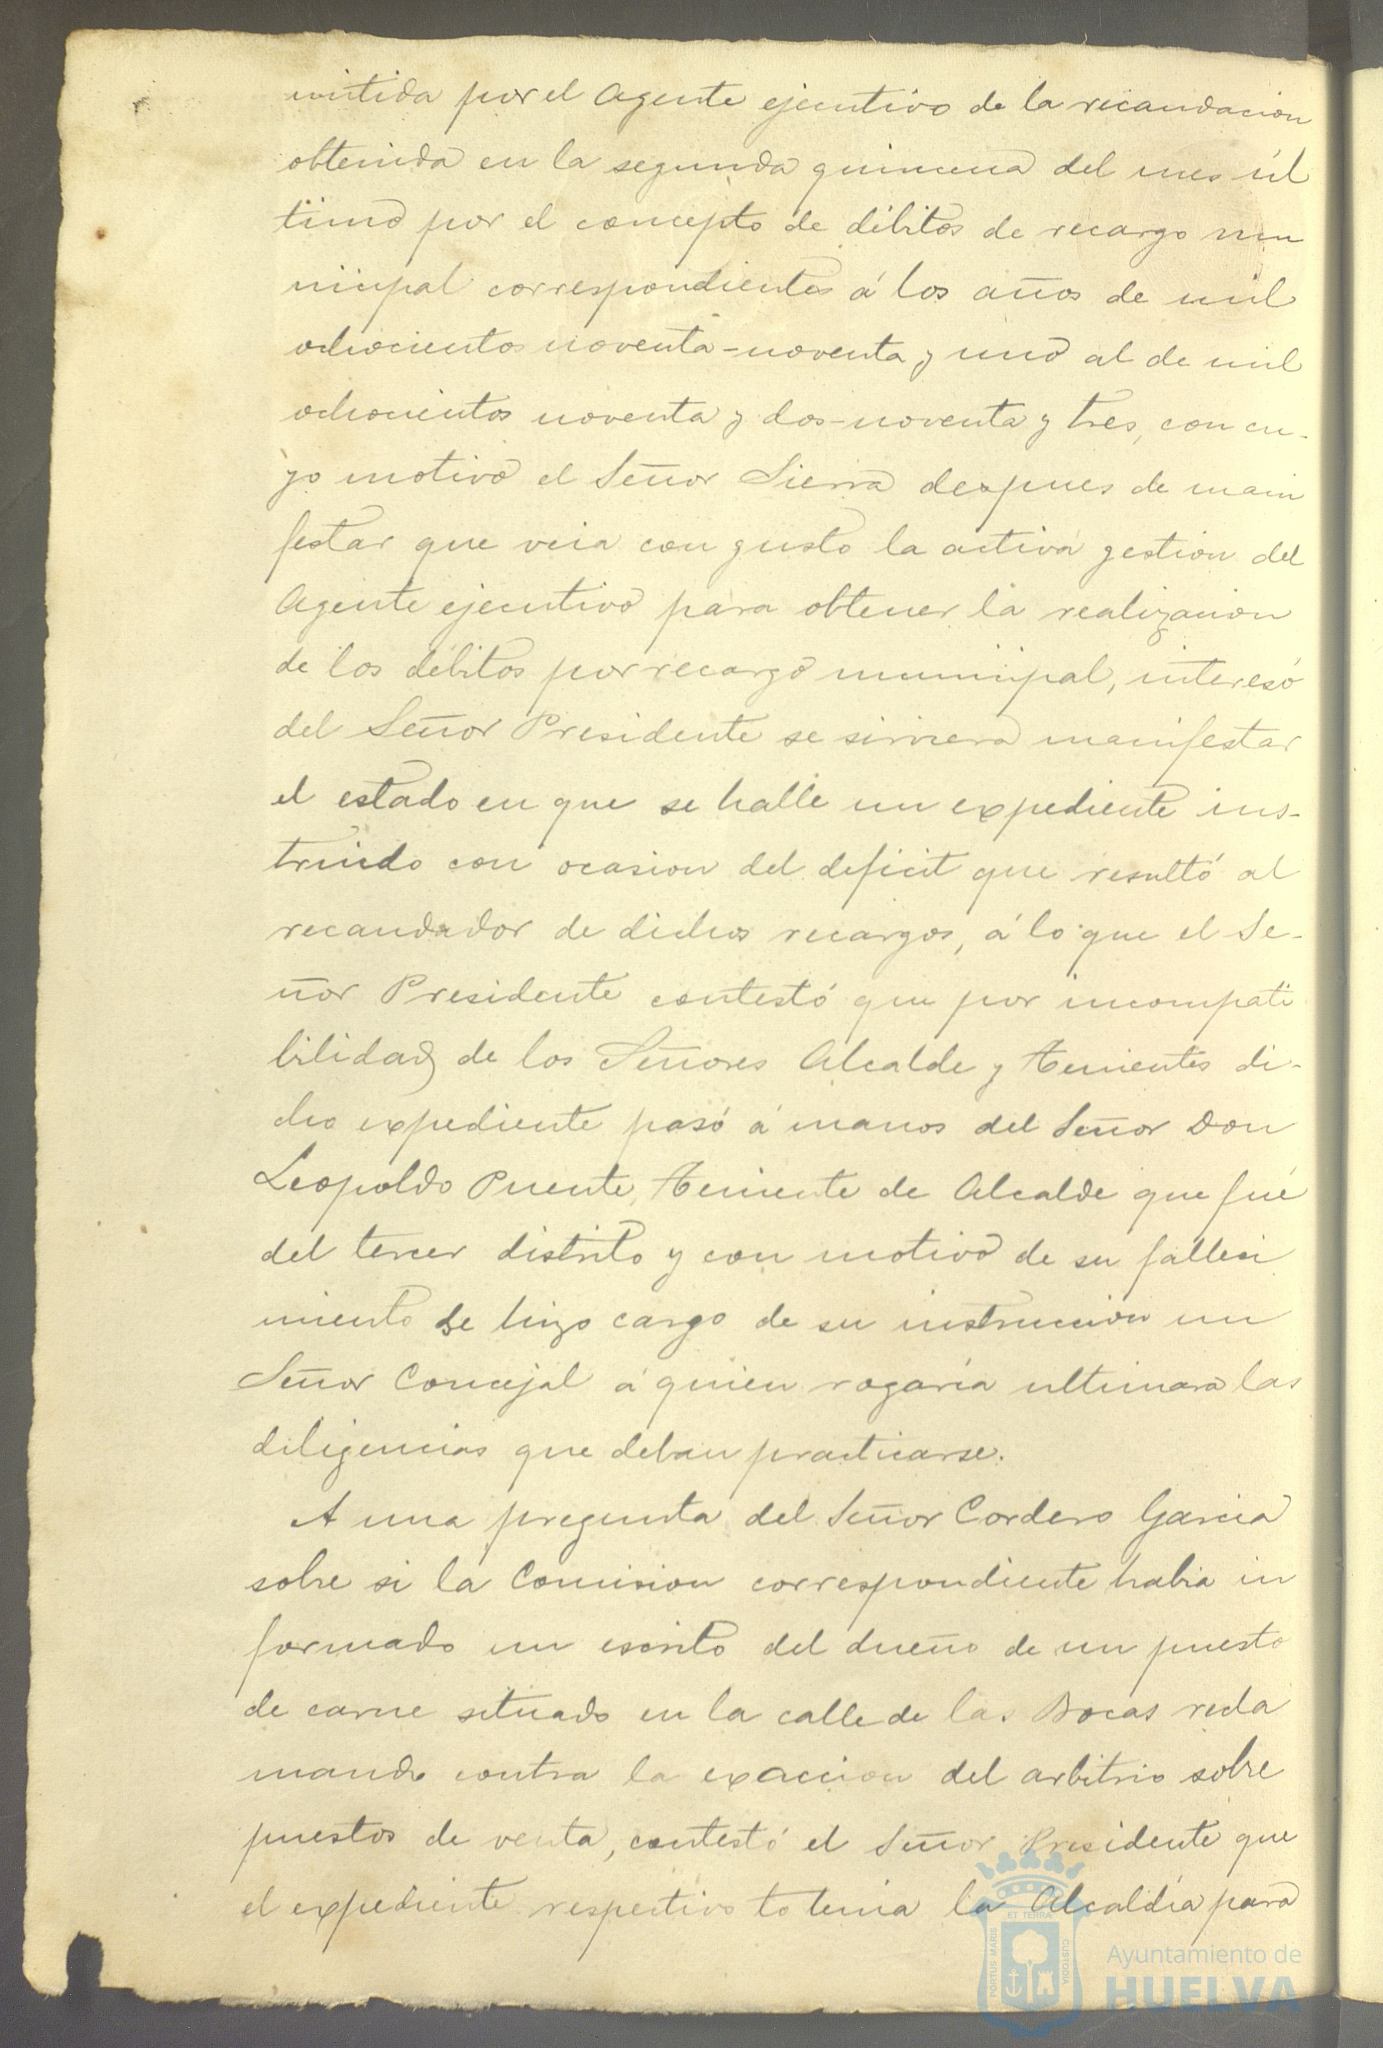 mitida por el Agente ejecutivo de la recaudacion
obtenida en la segunda quincena del mes úl
timo por el concepto de débitos de recargo mu
nicipal correspondientes á los años de mil
ochocientos noventa-noventa y uno al de mil
ochocientos noventa y dos-noventa y tres, con cu-
yo motivo el Señor Sierra despues de mani
festar que veia con gusto la activa gestion del
Agente ejecutivo para obtener la realizacion
de los débitos por recargo municipal, interesó
del Señor Presidente se sirviera manifestar
el estado en que se halle un expediente ins-
truido con ocasion del deficit que resultó al
recaudador de dichos recargos, á lo que el Se-
ñor Presidente contestó que por incompati
bilidad de los Señores Alcalde y Tenientes di-
cho expediente pasó á manos del Señor Don
Leopoldo Puente, Teniente de Alcalde que fué
del tercer distrito y con motivo de su falleci
miento se hizo cargo de su instruccion un
Señor Concejal á quien rogaría ultimara las
diligencias que deban practicarse.
A una pregunta del Señor Cordero Garcia
sobre si la Comision correspondiente habia in
formado un escrito del dueño de un puesto
de carne situado en la calle de las Bocas recla
mando contra la exaccion del arbitrio sobre
puestos de venta, contestó el Señor Presidente que
el expediente respectivo lo tenia la Alcaldía para
ET TERRA
PORTUS MARIS
CUSTODIA
Ayuntamiento de
HUELVA